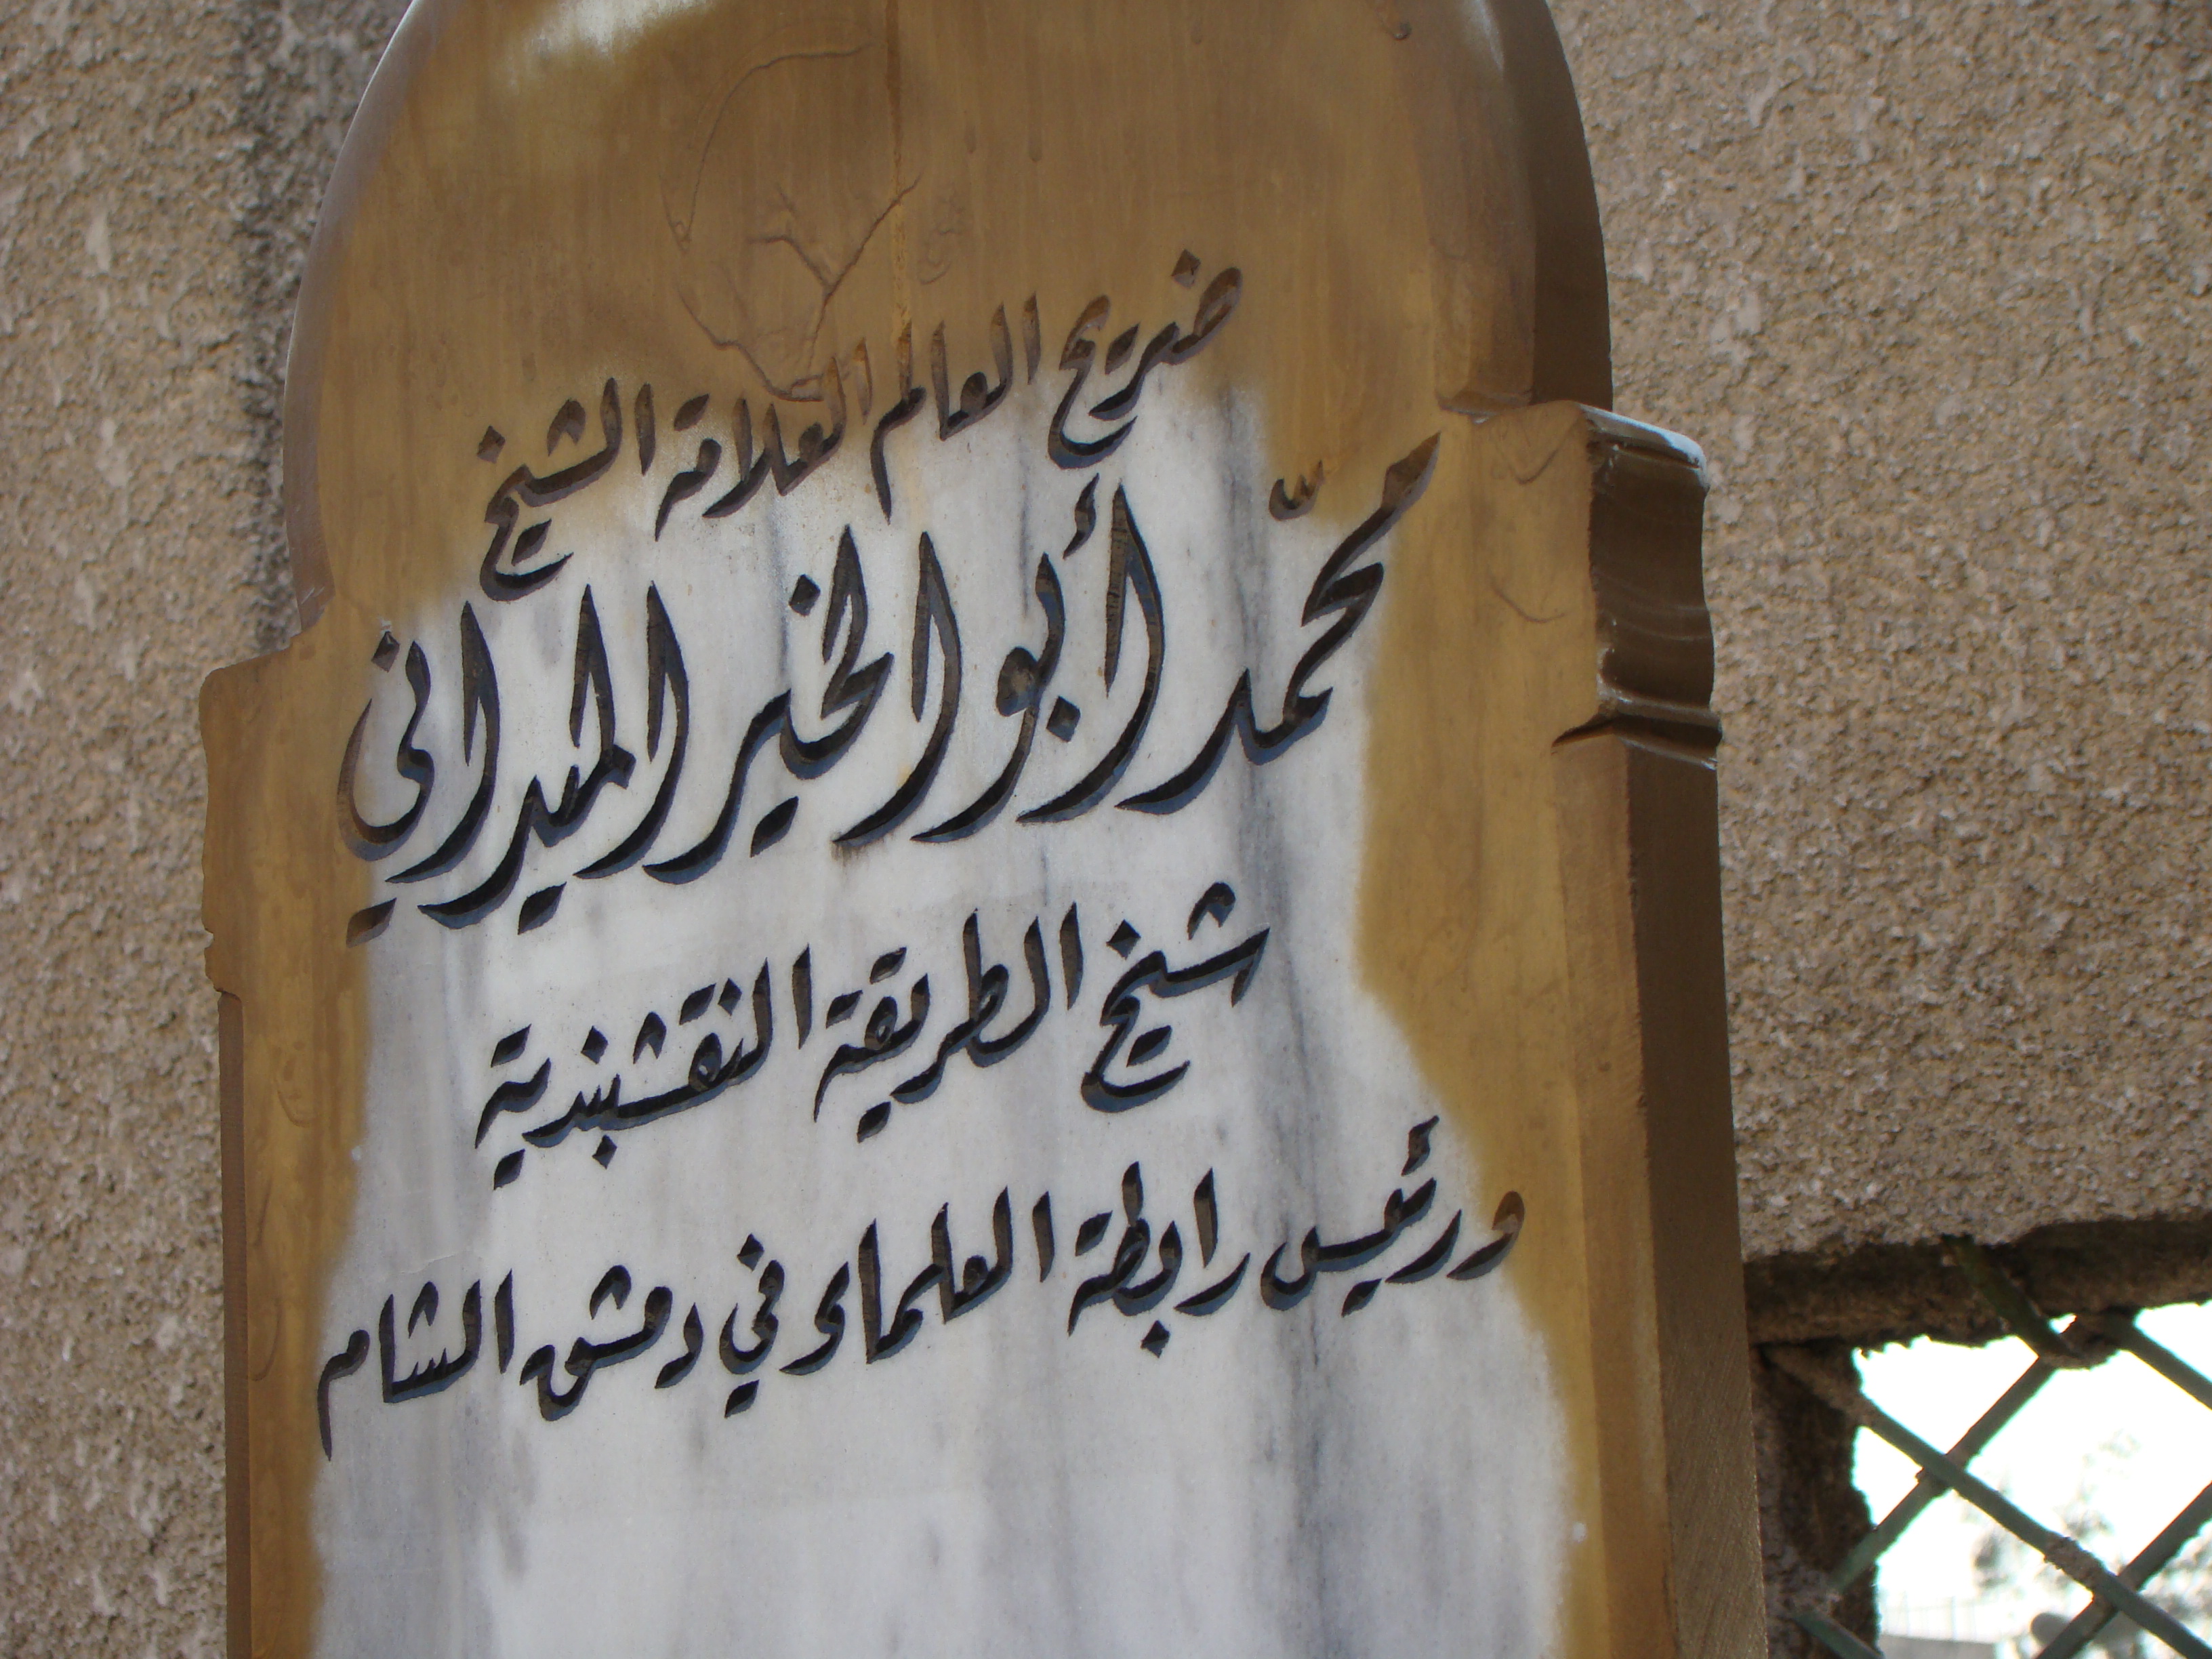 ضريح العالم العلامة الشيخ
محمّد أبو الخير الميداني
شيخ الطريقة النقشبندية
ورئيس رابطة العلماء في دمشق الشام